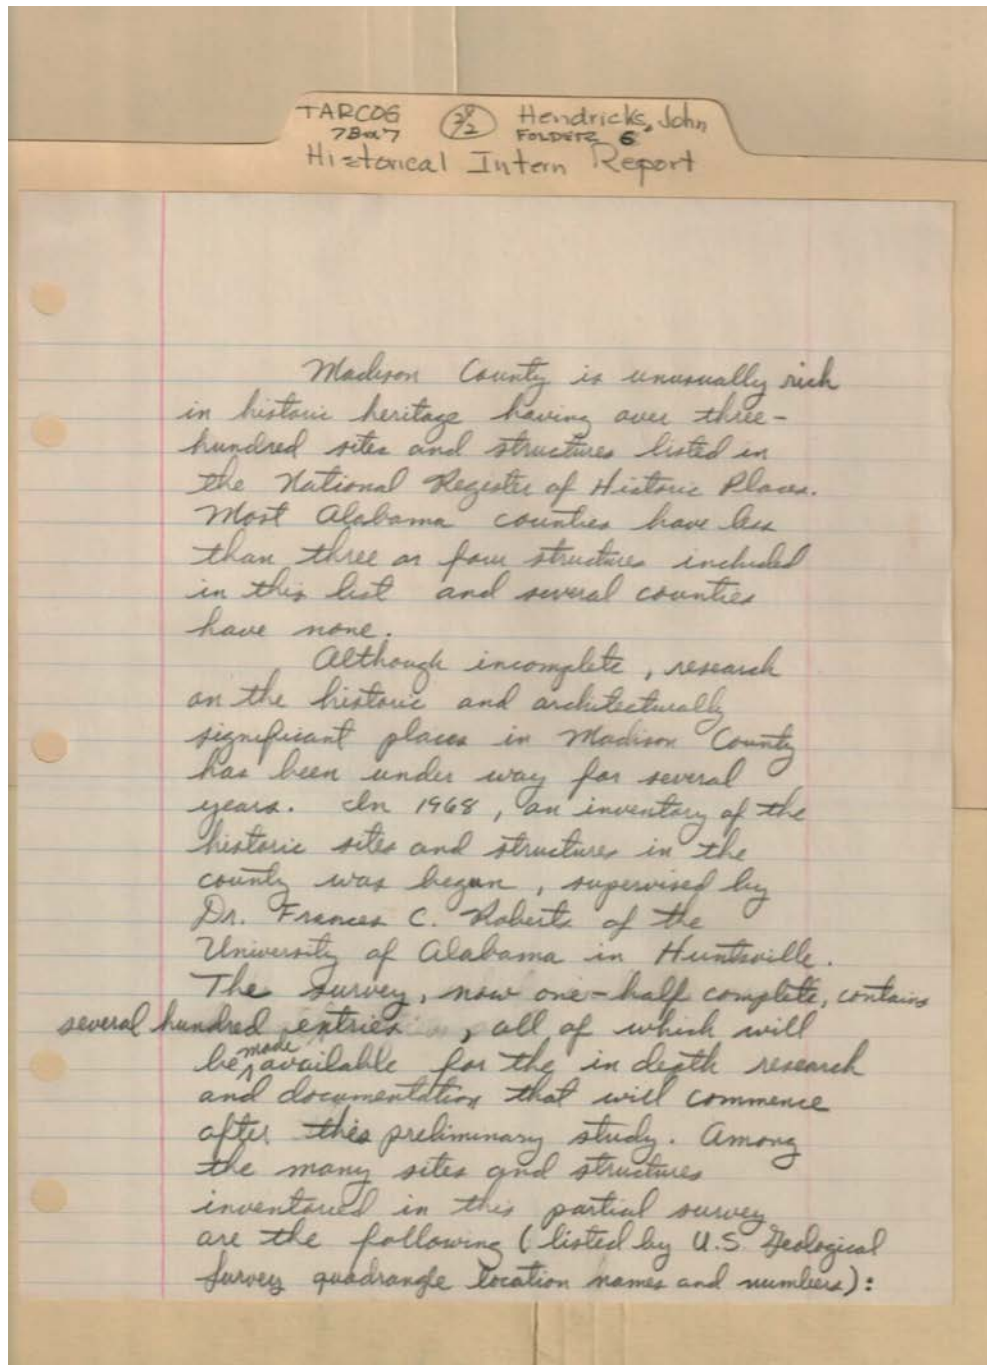 TARCOG Hendricks, John
FOLDER 6
Historical Intern Report
Madison County is unusually rich
in historic heritage having over three-
hundred sites and structures listed in
the National Register of Historic Places.
Most Alabama counties have less
than three or four structures included
in this list and several counties
have none.
Although incomplete, research
on the historic and architecturally
significant places in Madison County
has been under way for several
years. In 1968, an inventory of the
historic sites and structures in the
county was begun, supervised by
Dr. Frances C. Roberts of the
University of Alabama in Huntsville.
The survey, now one-half complete, contains
several hundred entries, all of which will
be made available for the in depth research
and documentation that will commence
after this preliminary study. Among
the many sites and structures
inventoried in this partial survey
are the following (listed by U.S. Geological
Survey quadrangle location names and numbers):